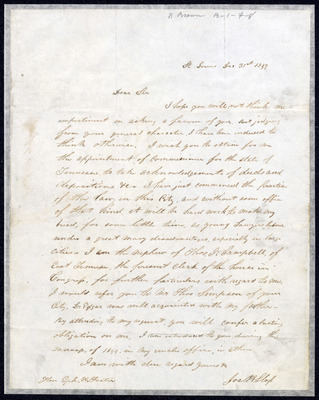 St Louis Dec 31st 1839
Dear Sir
I hope you will not think me
impertinent in asking a favour of you but judging
from your general character I have been induced to
think otherwise. I wish you to obtain for me
the appointment of Commissioner for the State of
Tennessee to take acknowledgements of deeds and
depositions &c. I have just commenced the practice
of the law, in this City, and without some office
of that kind it will be hard work to make my
bread, for some little time, as young Lawyers labour
under a great many disadvantages, especially in large
Cities. I am the nephew of Thos J. Campbell of
East Tennessee the present Clerk of the house in
Congress, for further particulars with regard to me,
I would refer you to Mr Thos Simpson of your
City, Dr was well acquainted with my father
By attending to my request, you will confer a lasting
obligation on me. I am
in my
I am with due regard yours &c
Jos W